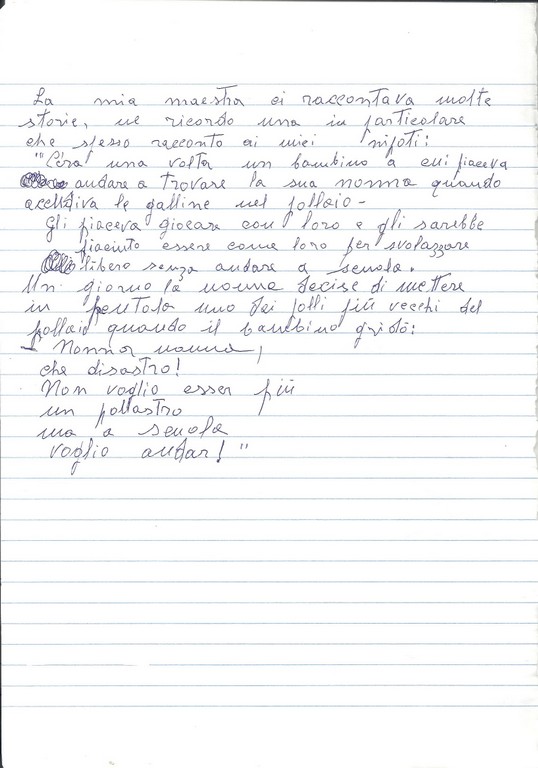 La mia maestra ci raccontava molte
storie, ne ricordo una in particolare
che spesso racconto ai miei nipoti:
"C'era una volta un bambino a cui piaceva
andare a trovare la sua nonna quando
accudiva le galline nel pollaio -
Gli piaceva giocare con loro e gli sarebbe
piaciuto essere come loro per svolazzare
libero senza andare a scuola.
Un giorno la nonna decise di mettere
in pentola uno dei polli più vecchi del
pollaio quando il bambino gridò:
- Nonna nonna,
che disastro!
Non voglio esser più
un pollastro
ma a scuola
voglio andar! "